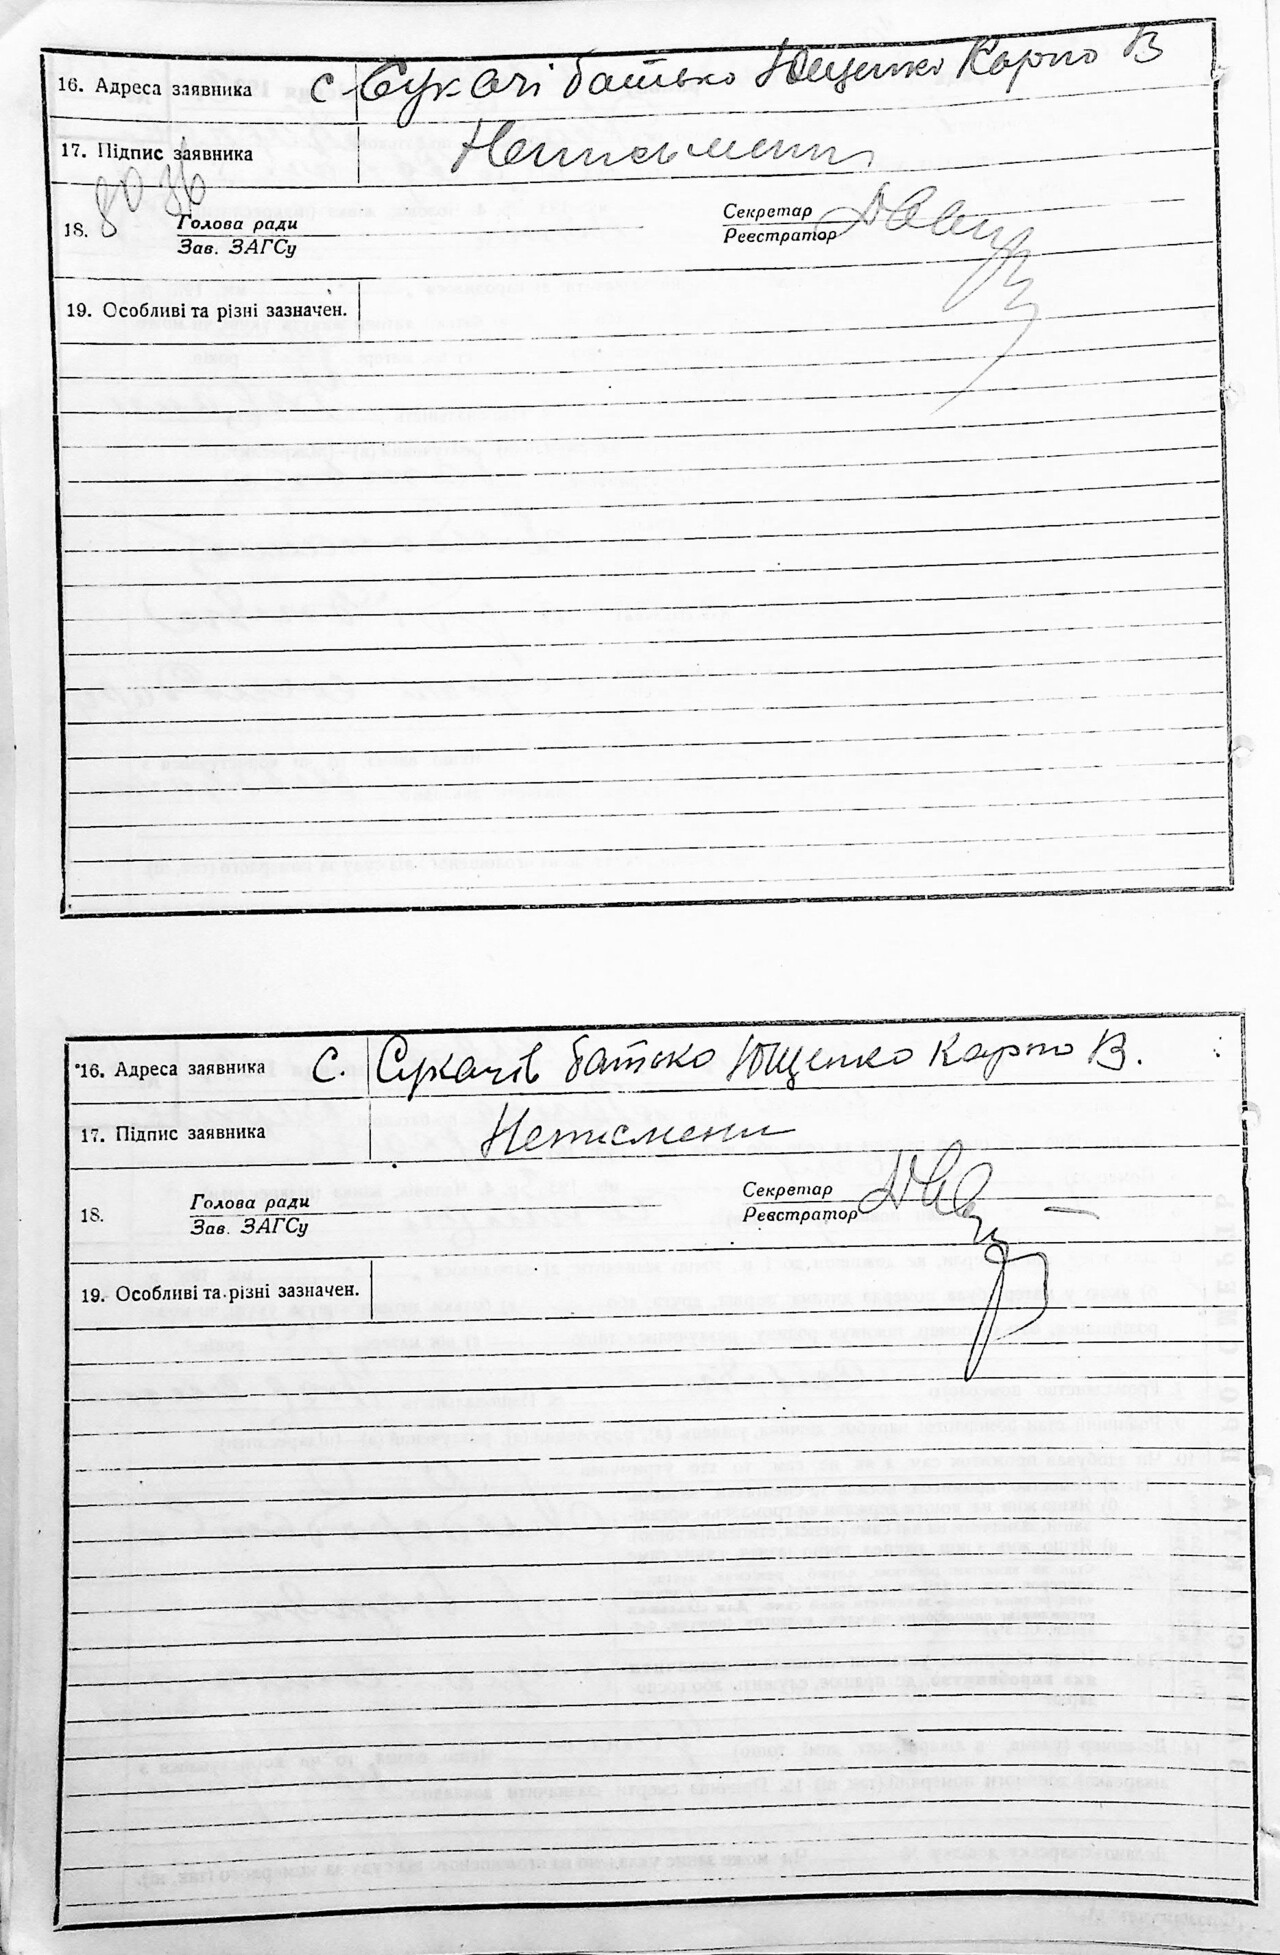 16. Адреса заявника с. Сукачі батько Ющенко Карпо В
17. Підпис заявника Неписьмени
80 36
18. Голова ради Секретар
Зав. ЗАГСу Реєстратор
19. Особливі та різні зазначен.
16. Адреса заявника с. Сукачів батько Ющенко Карпо В.
17. Підпис заявника Неписмени
18. Голова ради Секретар
Зав. ЗАГСу Реєстратор
19. Особливі та різні зазначен.